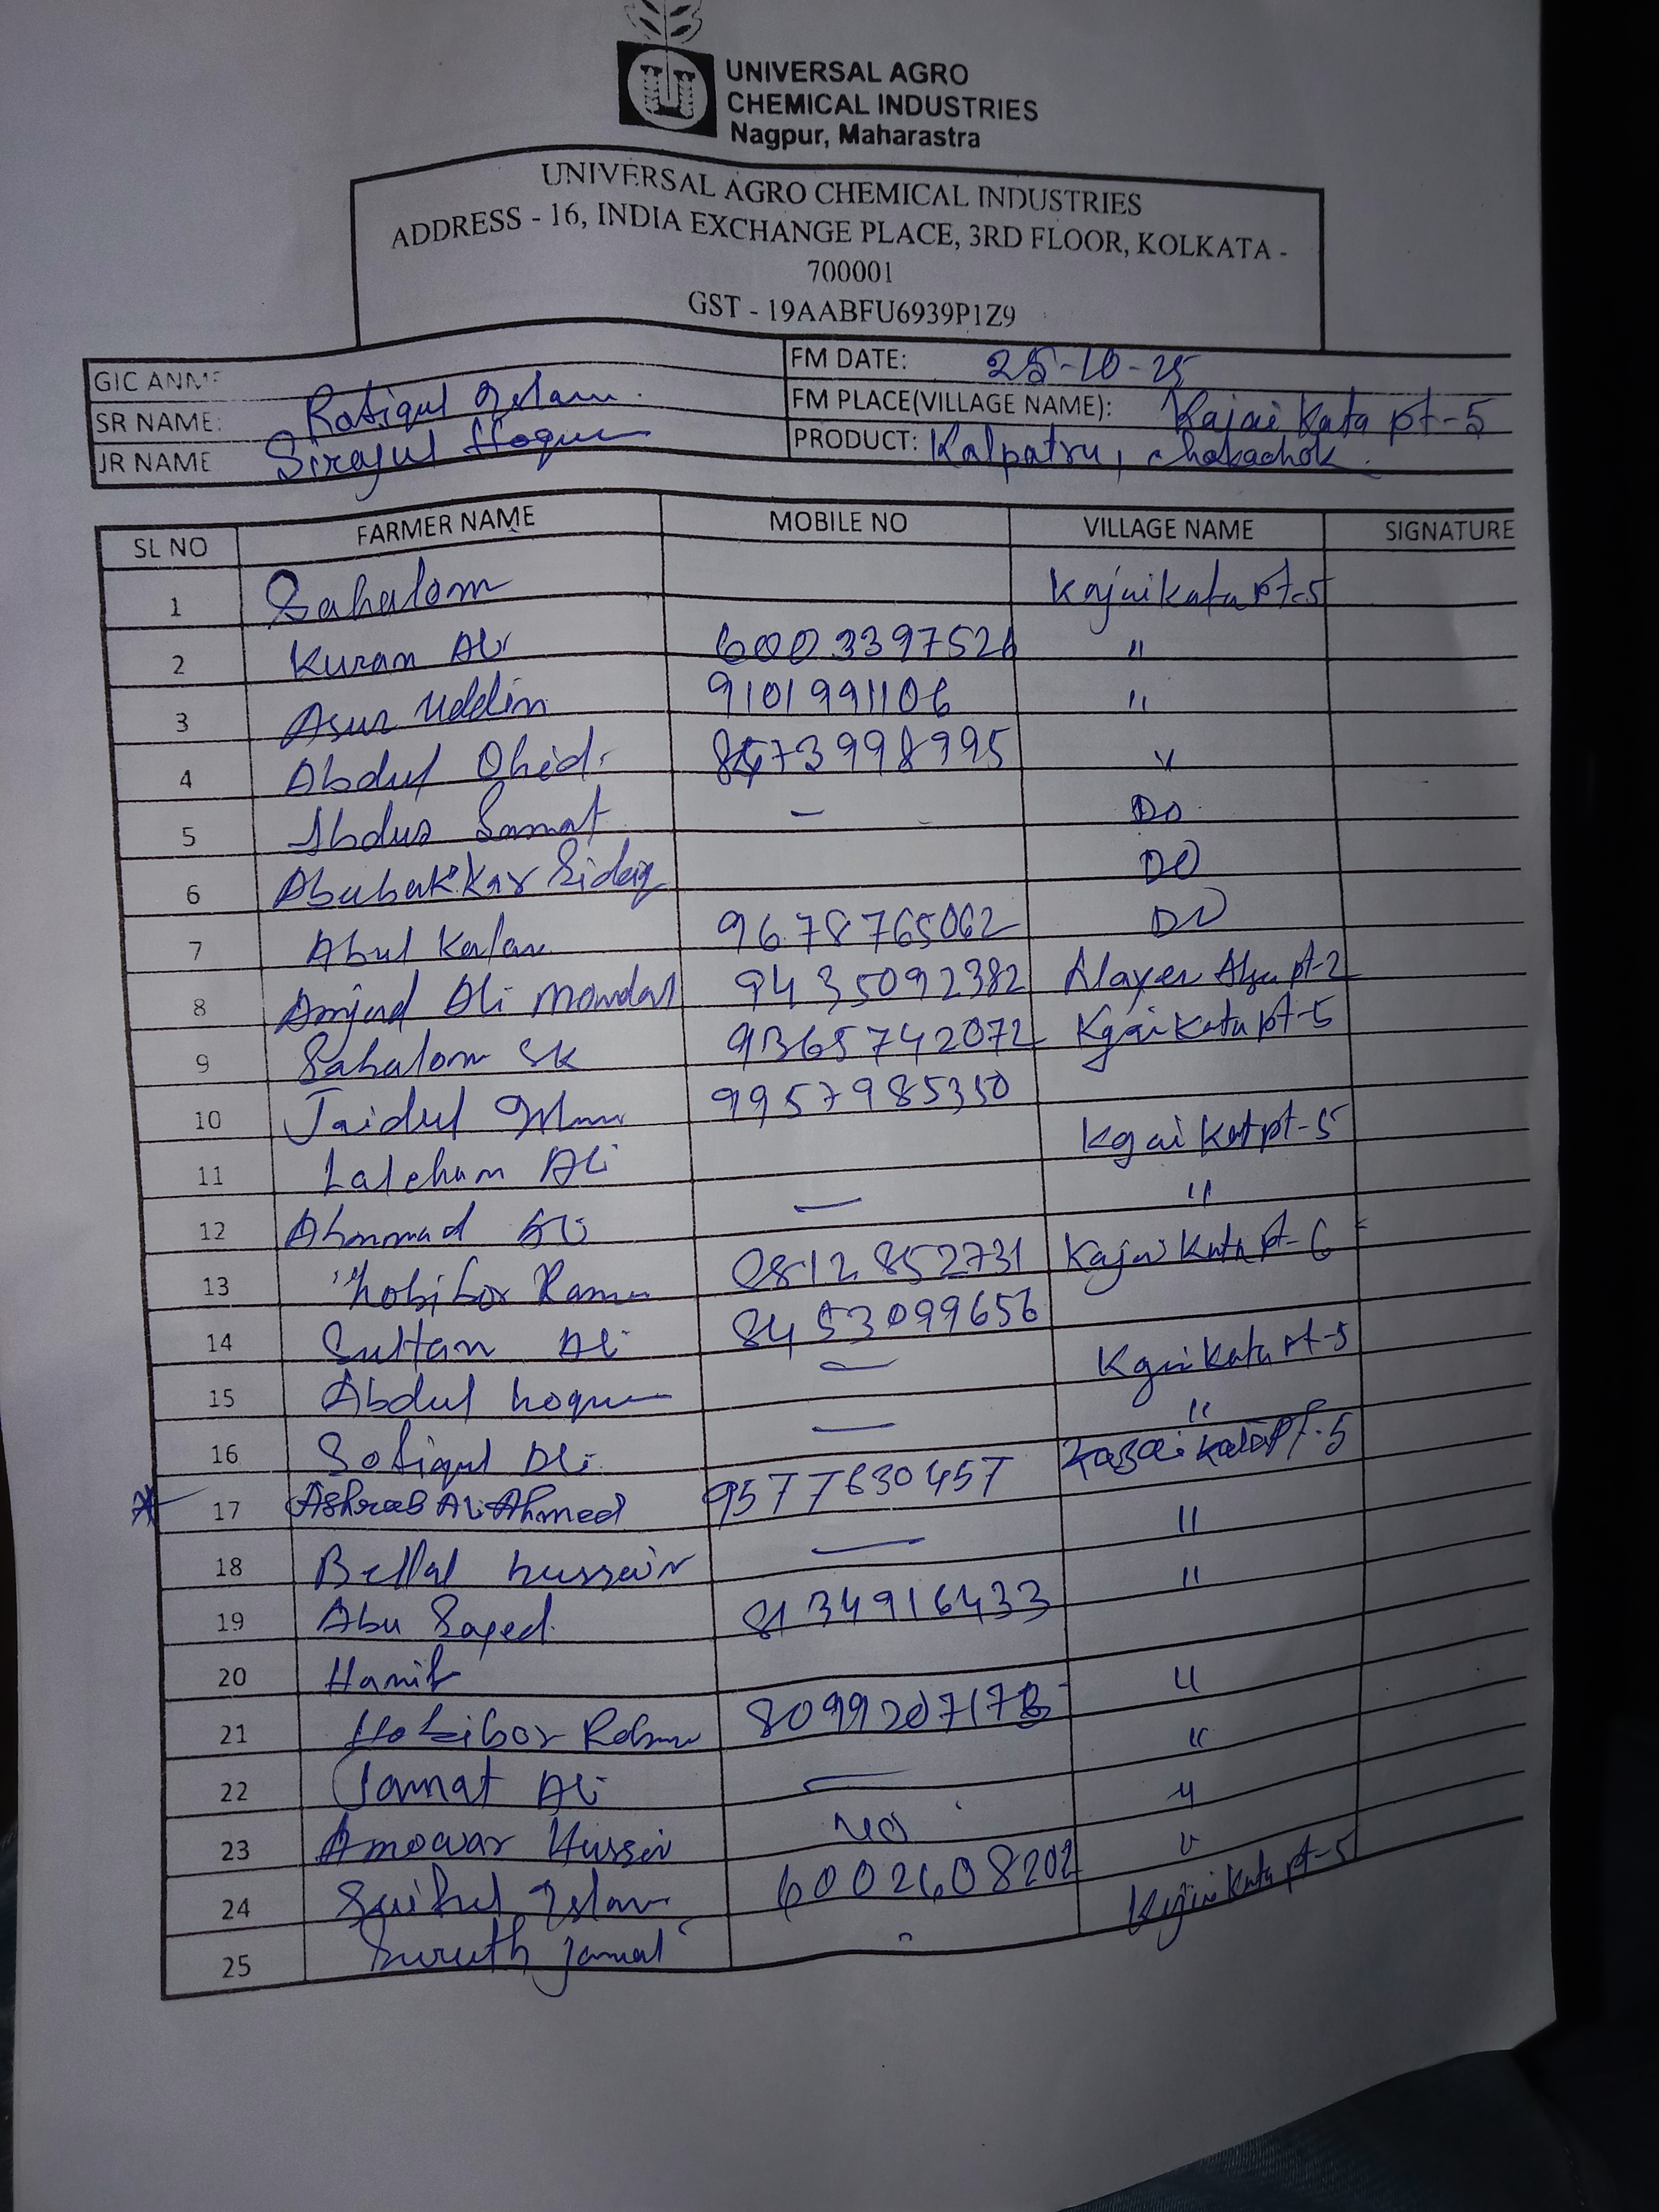 UNIVERSAL AGRO
CHEMICAL INDUSTRIES
Nagpur, Maharastra
UNIVERSAL AGRO CHEMICAL INDUSTRIES
ADDRESS - 16, INDIA EXCHANGE PLACE, 3RD FLOOR, KOLKATA -
700001
GST - 19AABFU6939P1Z9
GIC ANME
FM DATE: 25-10-25
SR NAME: Rofiqul Islam
FM PLACE(VILLAGE NAME): Kajai Kata pt-5
JR NAME Sirajul Hoque
PRODUCT: Kalpatru, chakachok
SL NO FARMER NAME MOBILE NO VILLAGE NAME SIGNATURE
1 Sahalom Kajaikata pt-5
2 Kuran Ali 6003397526 "
3 Asur Uddin 9101991106 "
4 Abdul Ohid 8473998995 "
5 Abdus Samat - DO
6 Abubakkar Sidiq DO
7 Abul Kalam 9678765062 DO
8 Amjad Ali Mondal 9435092382 pt-2
9 Sahalom SK 9365742072 Kajaikata pt-5
10 Jaidul Islam 9957985350
11 Lalchan Ali Kajai Kata pt-5
12 Ahmmad Ali - "
13 Hobibor 0812852731 Kajai Kata pt-6
14 Sultan Ali 8453099656
15 Abdul hoque - Kajai Kata pt-5
16 Sofiqul Ali - "
17 Ashrab Ali Ahmed 9577630457 Kazai kata Pt-5
18 Bellal hussain - "
19 Abu Sayed 8134916433 "
20 Hanif
21 Hobibor Rohman 809920717 "
22 Jamat Ali - "
23 Anowar Hussein NO "
24 Saiful Islam 6002608202 "
25 Jamal - Kajai Kata pt-5